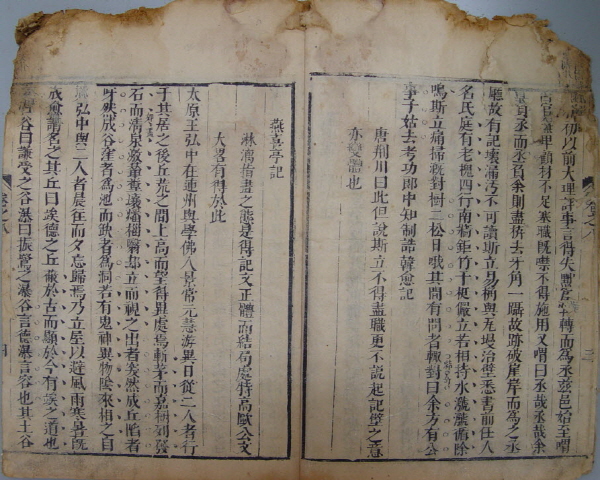 初以前大理評事言得失黜官再轉而為丞茲邑始至喟
官無卑顧材不足塞職既噤不得施用又喟曰丞哉丞哉余
負丞而丞負余則盡枿去牙角一躡故跡破崖岸而為之丞
廳故有記壞漏污不可讀斯立易桷與瓦墁治壁悉書前任人
名氏庭有老槐四行南牆鉅竹千梃儼立若相持水㶁㶁循除
鳴斯立痛掃溉對樹二松日哦其間有問者輒對曰余方有公
事子姑去考功郎中知制誥韓愈記
唐荊川曰此但說斯立不得盡職更不說起記壁之意
亦變體也
燕喜亭記
淋漓指畫之態是得記文正體而結局處特高歐公文
大略有得於此
太原王弘中在連州與學佛人景常元慧游異日從二人者行
于其居之後丘荒之間上高而望得異處焉斬茅而嘉樹列發
石而清泉激輦糞壤燔椔翳却立而視之出者突然成丘陷者
呀然成谷窪者為池而缺者為洞若有鬼神異物陰來相之自
弘中與二人者晨往而夕忘歸焉乃立屋以避風雨寒暑既
成愈請名之其丘曰竢德之丘蔽於古而顯於今有竢之道也
谷曰謙受之谷瀑曰振鷺之瀑谷言德瀑言容也其土谷
卷之八